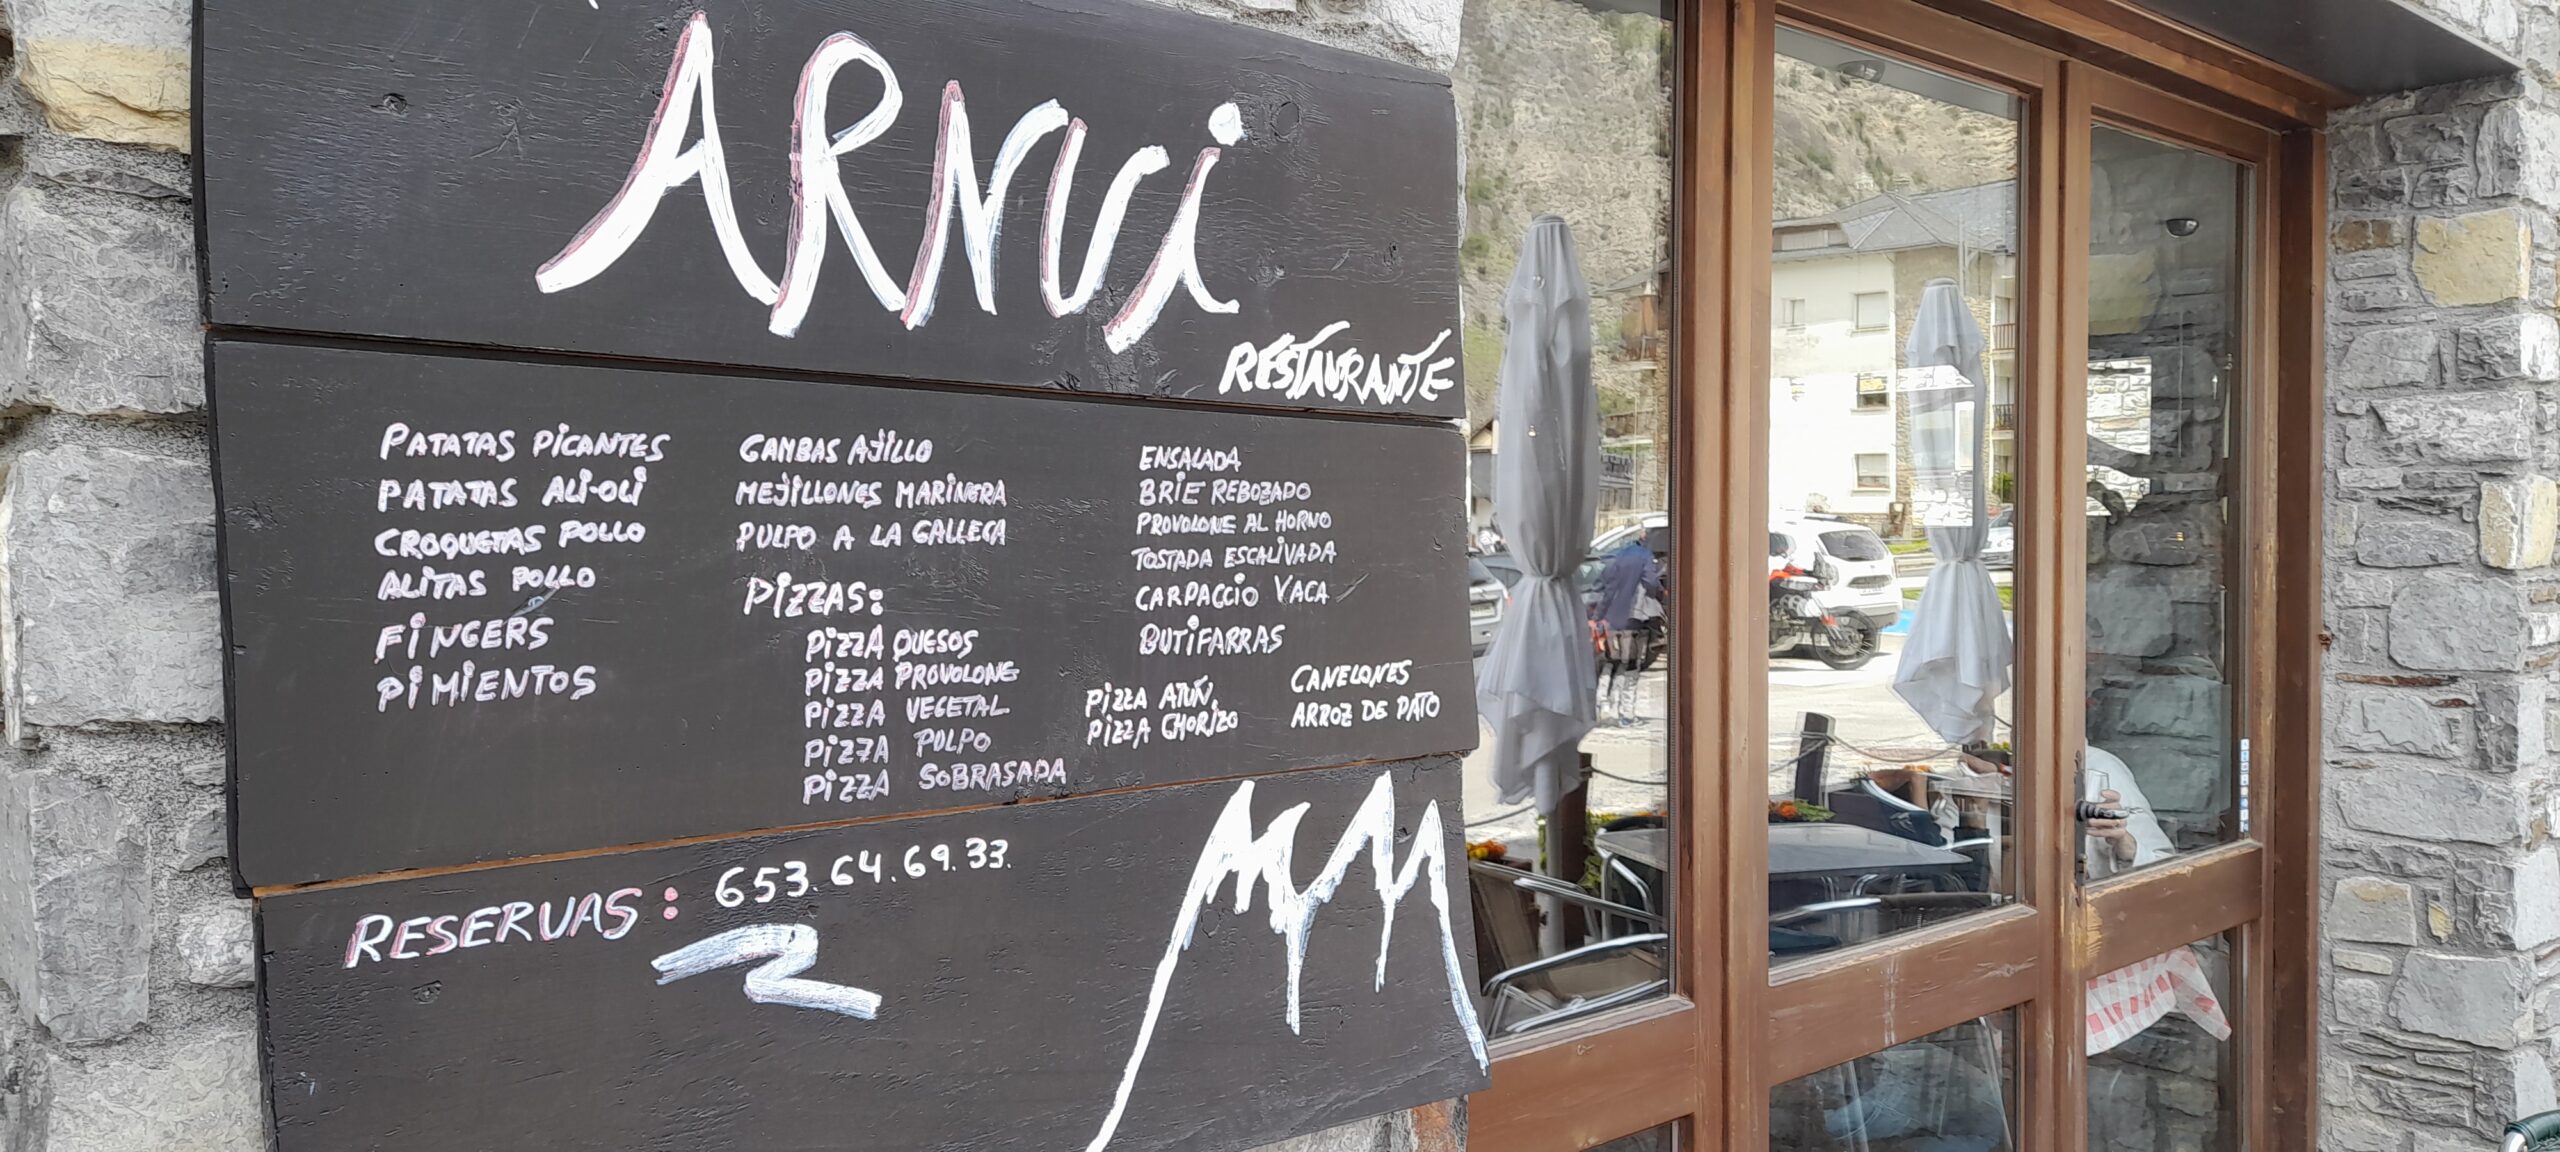 ARNUi
RESTAURANTE
PATATAS PICANTES
PATATAS ALI-OLI
CROQUETAS POLLO
ALITAS POLLO
FINGERS
PIMIENTOS
GAMBAS AJILLO
MEJILLONES MARINERA
PULPO A LA GALLEGA
PIZZAS:
PIZZA QUESOS
PIZZA PROVOLONE
PIZZA VEGETAL
PIZZA PULPO
PIZZA SOBRASADA
ENSALADA
BRIE REBOZADO
PROVOLONE AL HORNO
TOSTADA ESCALIVADA
CARPACCIO VACA
BUTIFARRAS
PIZZA ATÚN
PIZZA CHORIZO
CANELONES
ARROZ DE PATO
RESERVAS: 653.64.69.33.